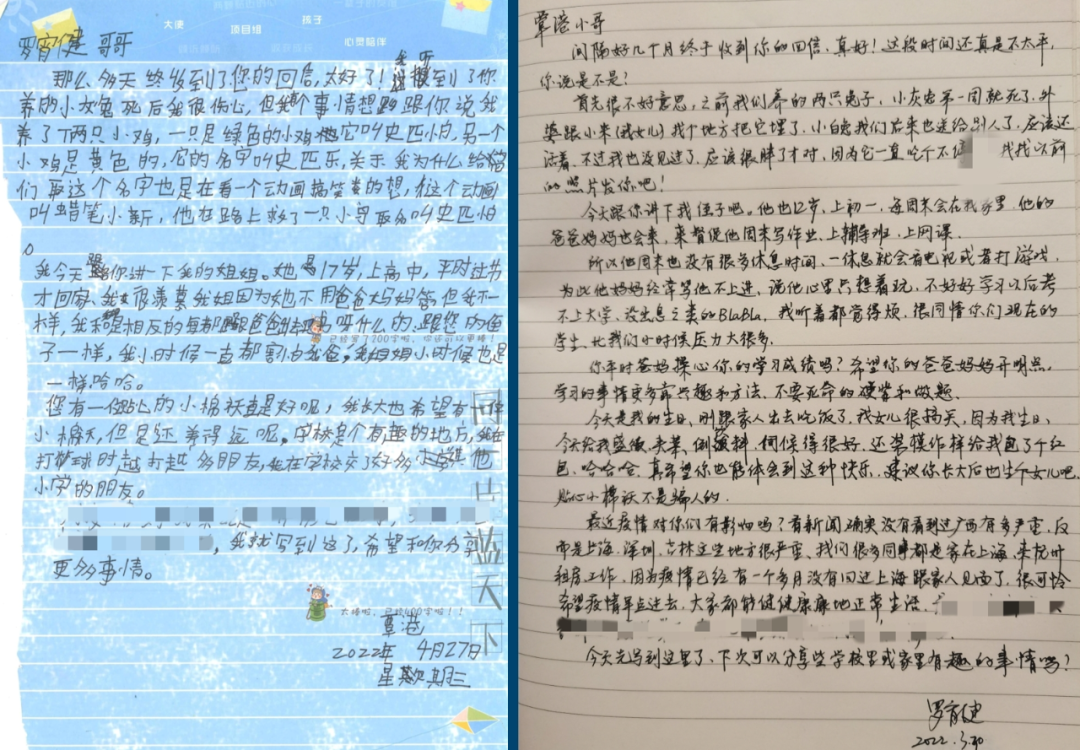 大使
项目组
孩子
心灵陪伴
罗育健 哥哥
那么多天终于收到了您的回信,太好了!我听到了你
养的小灰兔死后我很伤心,但我个事情想跟你说我
养了丁两只小鸡,一只是绿色的小鸡它叫史匹怕,另一个
小鸡是黄色的,它的名字叫史匹乐,关于我为什么给它
们取这个名字也是在看一个动画搞笑的想,这个动画
叫蜡笔小新,他在路上救了一只小鸟取名叫史匹怕
。
我今天跟你讲一下我的姐姐。她是17岁,上高中,平时过节
才回家、我很羡慕我姐因为她不用爸爸妈妈管,但我不一
样,我和相反的每都跟爸爸呀什么的,跟您的侄
子一样,我小时候一直都割,我姐姐小时候也是
一样哈哈。
您有一个贴心的小棉袄真是好呢,我长大也希望有一件
小棉袄,但是还养得远呢。学校是个有趣的地方,我在
打球时越打越多朋友,我在学校交了好多其他
小学的朋友。
,我就写到这了,希望和你分享
更多事情。
覃港
2022年 4月27日
星期三
同一片蓝天下
已经写了200字啦,
太棒啦,已经400字啦!!
覃港小哥
间隔好几个月终于收到你的回信,真好!这段时间还真是不太平,
你说是不是?
首先很不好意思,之前我们养的两只兔子,小灰第一周就死了,外
婆跟小米(我女儿)找个地方把它埋了,小白兔我们后来也送给别人了,应该还
活着,不过我也没见过了,应该很胖了才对,因为它一直吃个不停 我找以前
的照片发你吧!
今天跟你讲下我侄子吧。他也12岁,上初一,每周末会在我家里,他的
爸爸妈妈也会来,来督促他周末写作业、上辅导班、上网课。
所以他周末也没有很多休息时间、一休息就会看电视或者打游戏,
为此他妈妈经常骂他不上进、说他心里只想着玩,不好好学习以后考
不上大学,没出息之类的BlaBla,我听着都觉得烦,很同情你们现在的
学生,比我们小时候压力大很多。
你平时爸妈操心你的学习成绩吗?希望你的爸爸妈妈开明点,
学习的事情更多靠兴趣和方法,不要死命的硬背和做题。
今天是我的生日,刚跟家人出去吃饭了,我女儿很搞笑,因为我生日,
今天给我盛饭、夹菜、倒饮料、伺候得很好,还装模作样给我包了个红
包,哈哈哈,真希望你也能体会到这种快乐。建议你长大后也生个女儿吧,
贴心小棉袄不是骗人的。
最近疫情对你们有影响吗?看新闻确实没有看到过广西有多严重,反
而是上海、深圳、吉林这些地方很严重、我们很多同事都是家在上海,来杭州
租房工作,因为疫情已经有一个多月没有回过上海跟家人见面了,很可怜
希望疫情早点过去,大家都能健健康康地正常生活,
今天先写到这里了,下次可以分享些学校里或家里有趣的事情吗?
罗育健
2022.3.30